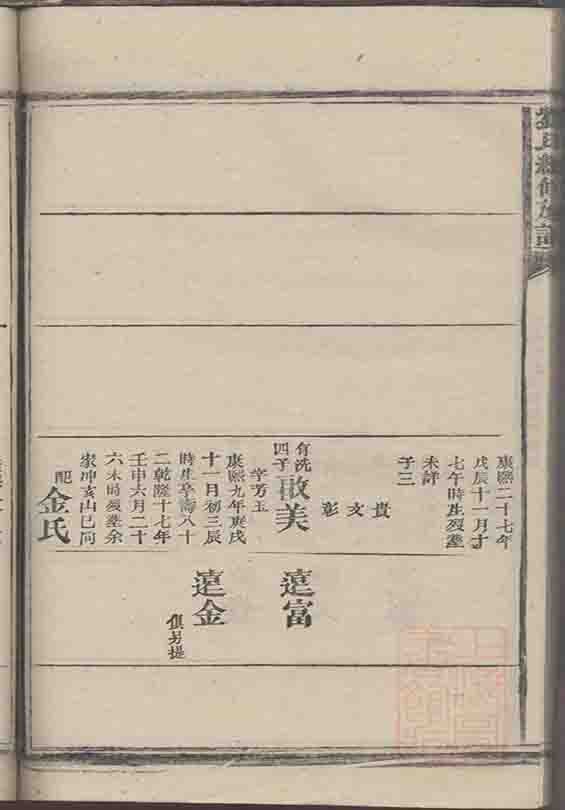 氏總修族譜
康熙二十七年
戊辰十一月十
七午時生歿塟
未詳
子三
貴
文
彰
有洗
四子
啟美
字芳玉
康熙九年庚戌
十一月初三辰
時生卒壽八十
二乾隆十七年
壬申六月二十
六未時歿塟余
家冲亥山巳向
配
金氏
遠富
遠金
俱另提